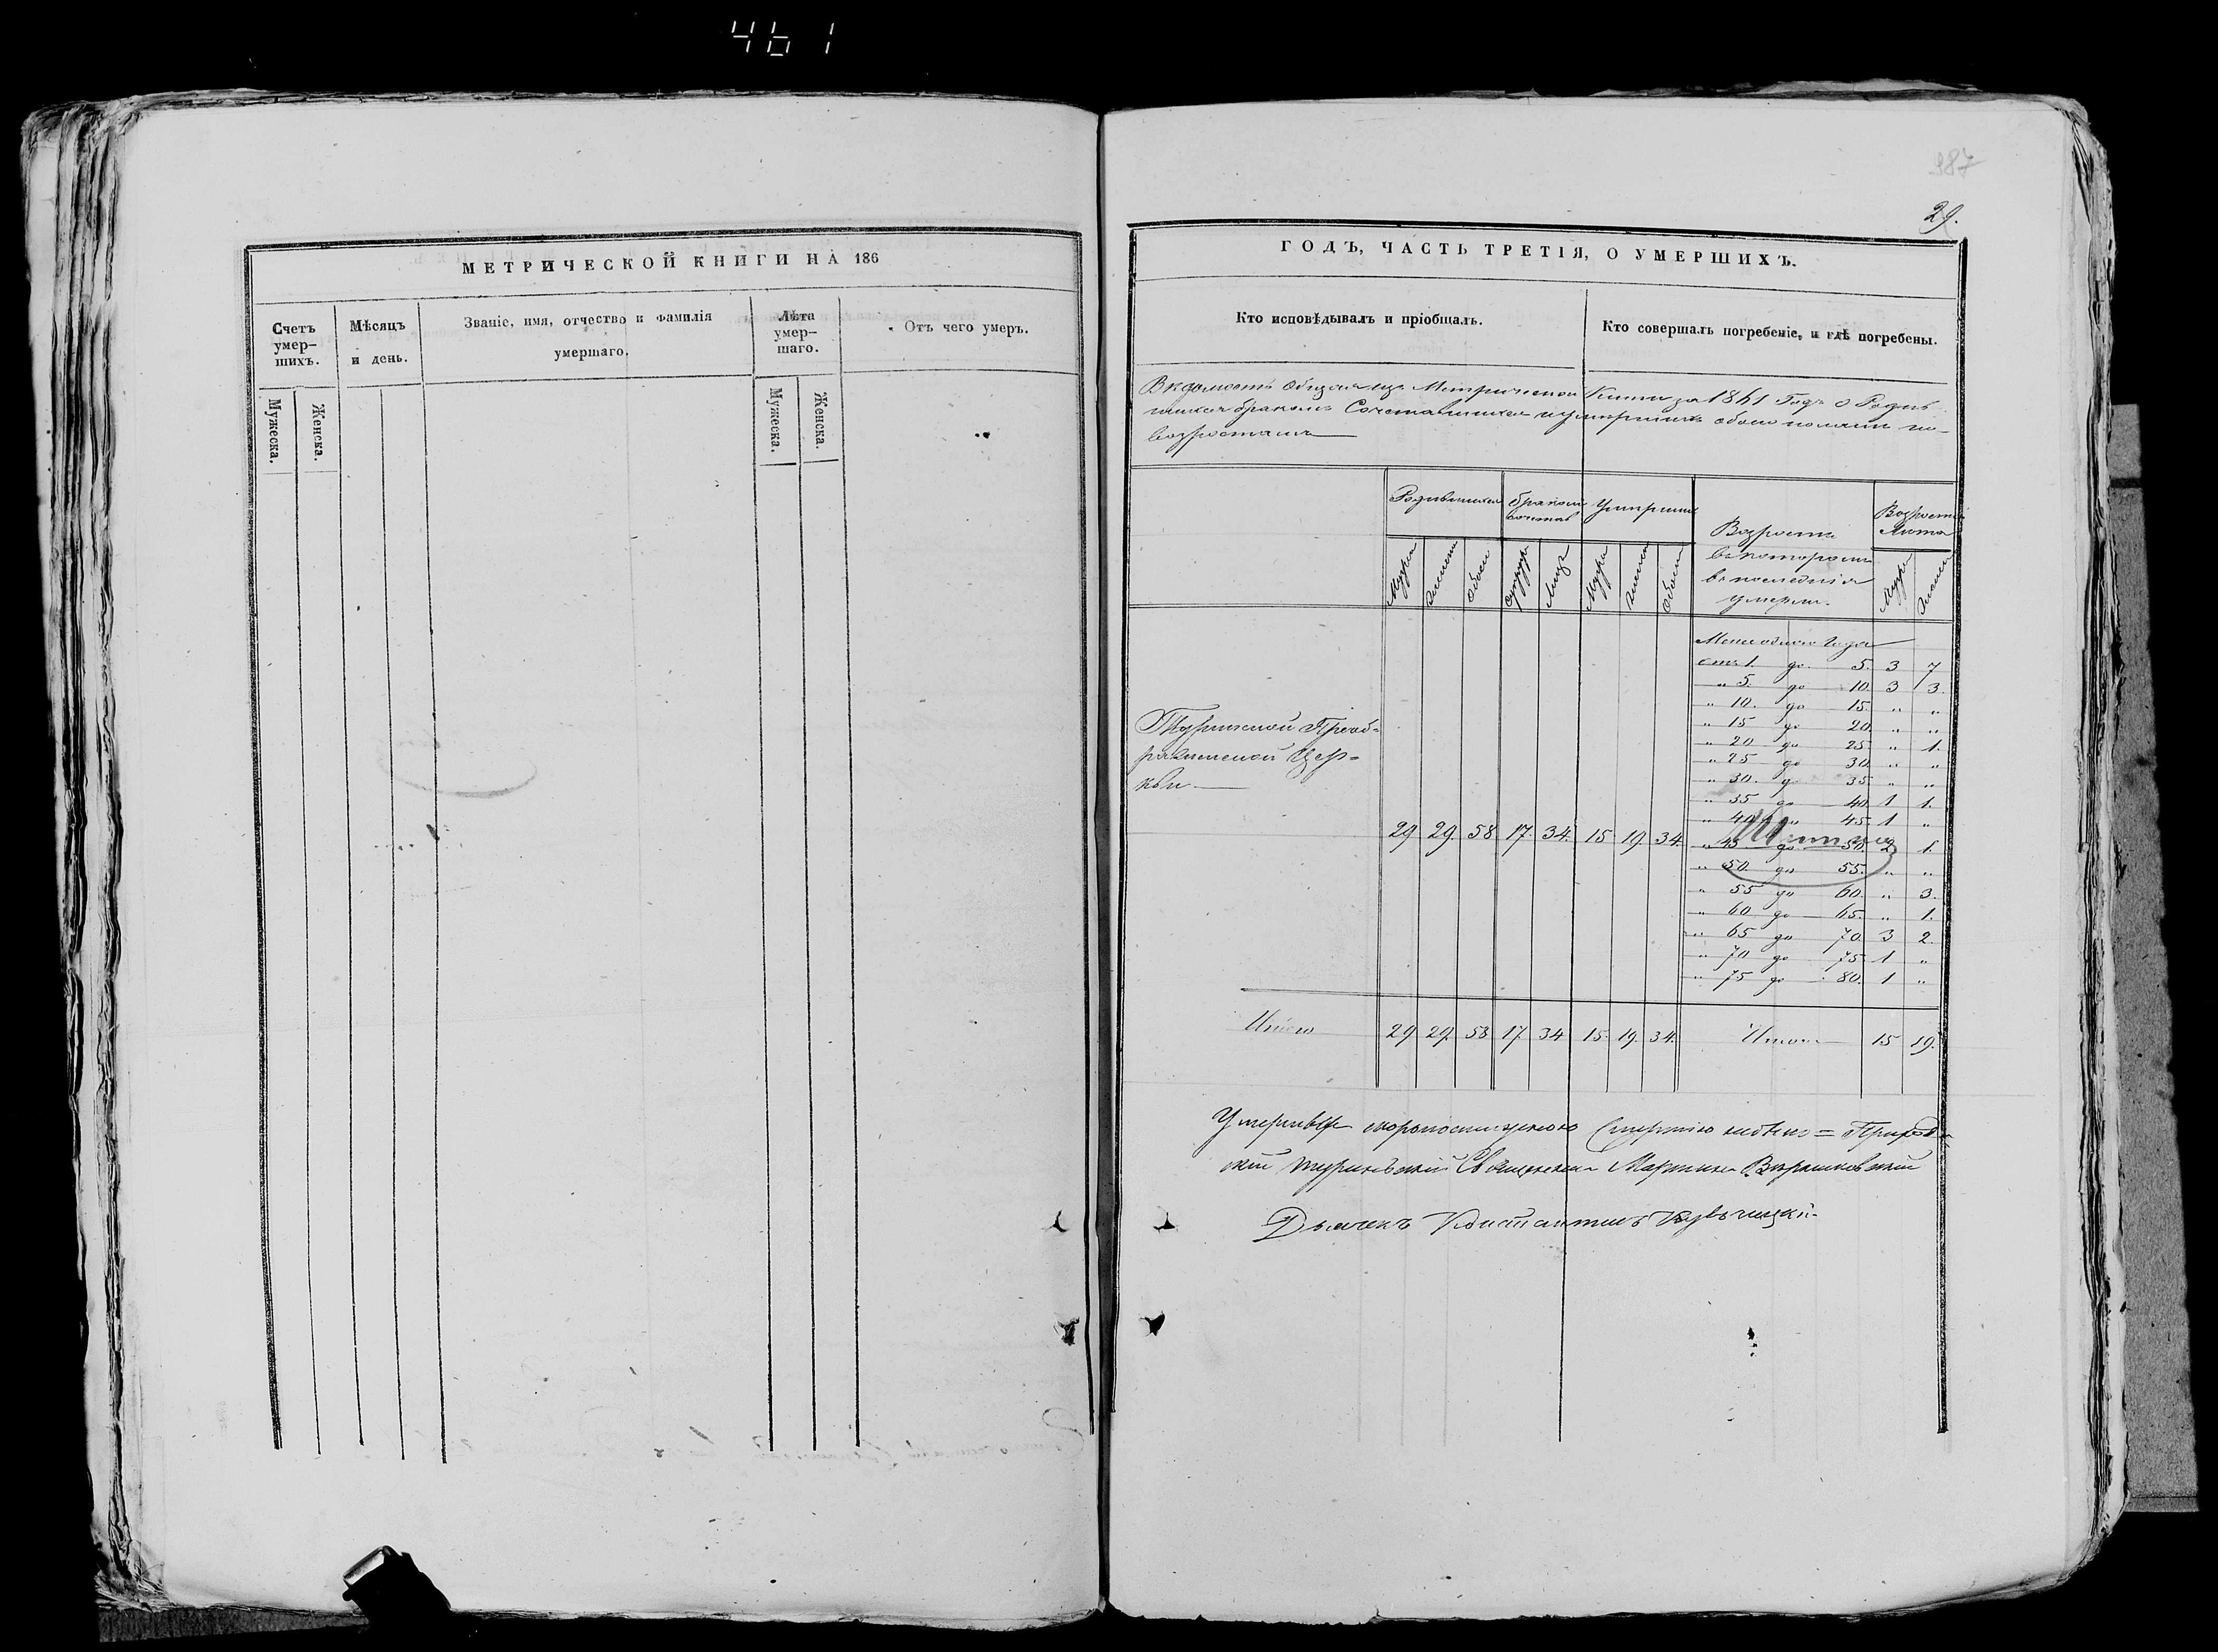 461
987
29.
МЕТРИЧЕСКОЙ КНИГИ НА 186
Счетъ умер-шихъ.
Мѣсяцъ и день.
Званіе, имя, отчество и фамилія умершаго.
Лѣта умер-шаго.
Отъ чего умеръ.
Мужеска.
Женска.
Мужеска.
Женска.
ГОДЪ, ЧАСТЬ ТРЕТІЯ, О УМЕРШИХЪ.
Кто исповѣдывалъ и пріобщалъ.
Кто совершалъ погребеніе, и гдѣ погребены.
Вѣдомость общая изъ Метрической Книги за 1861 Годъ о Родив
шихся бракомъ Сочетавшихся и умершихъ обоего пола по
возростамъ
Родившихся
бракомъ сочетав
Умершихъ
Возроста
въ которомъ
въ послѣднія
умерли.
Мужес
женска
обоего
супруж
Лицъ
Мужес
женска
обоего
Мужес
женска
Менее одного года
отъ 1. до 5. 3 7
" 5. до 10. 3 3.
" 10. до 15. " "
" 15 до 20. " "
" 20 до 25 " 1.
" 25 до 30. " "
" 30. до 35 " "
" 35 до 40. 1 1.
" 40 " 45. 1 "
" 45 до 50. 2 1.
" 50. до 55. " "
" 55 до 60. " 3.
" 60 до 65. " 1.
" 65 до 70. 3 2.
" 70 до 75. 1 "
" 75 до 80. 1 "
Преоб=
раженской Цер=
кви
29 29. 58 17. 34. 15 19. 34.
Итого 29 29. 58 17. 34 15. 19. 34. Итого 15 19.
скоропостижною Смертію небыло =
Священникъ
Дьячекъ Константинъ